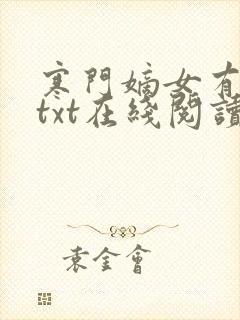 寒門嫡女有
txt在綫閱讀
袁金會